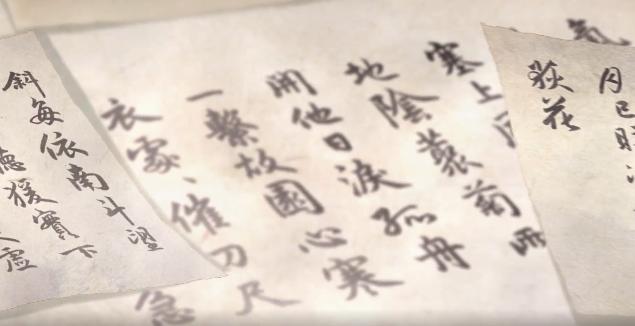 氣
塞上
地陰叢菊兩
開他日淚孤舟
一繫故園心寒
衣處、催刀尺
急
月已映
荻花
斜每依南斗望
聽猿實下
虛